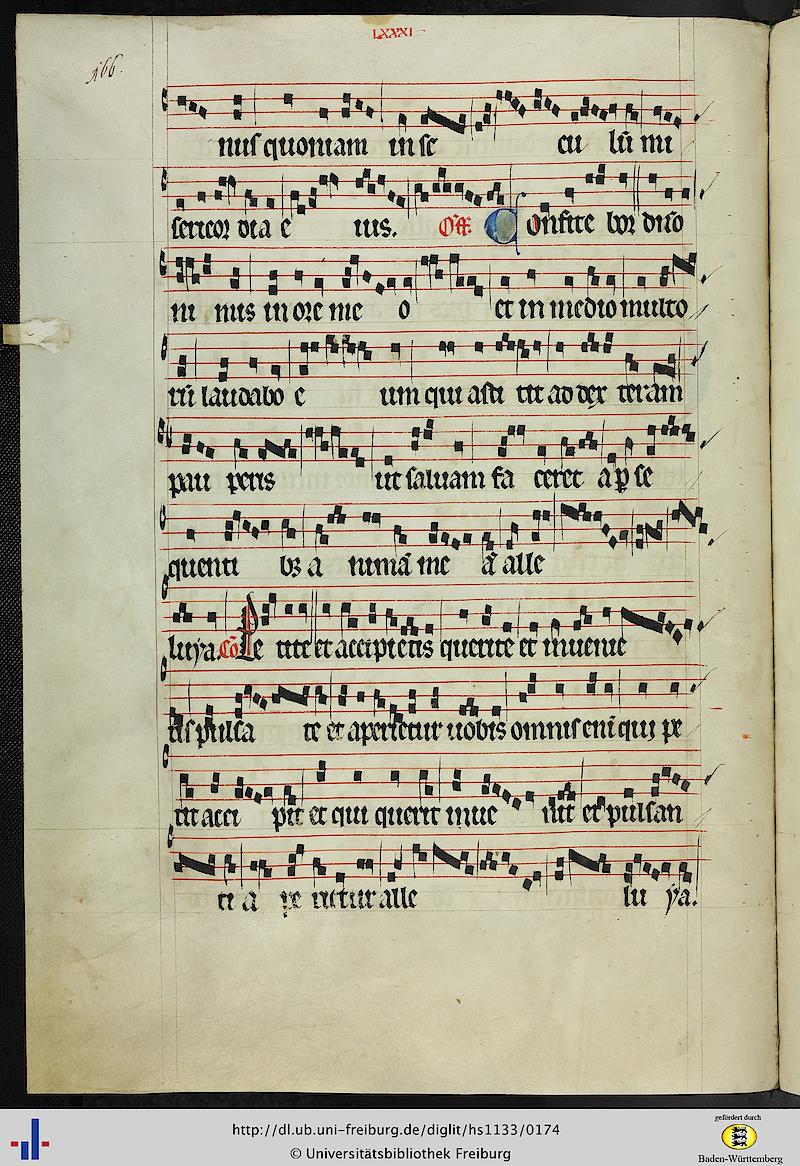 LXXXI
166.
nus quoniam in se cu lū mi
sericor dia e ius. Off. Confite bor dño
ni mis in ore me o et in medio multo
rū laudabo e um qui asti tit ad dex teram
pau peris ut saluam fa ceret a p̱ se
quenti bꝫ a nimā me ā alle
luya. Cō Pe tite et accipietis querite et inuenie
tis pulsa te et aperietur uobis omnis enī qui pe
tit acci pit et qui querit inue nit et pulsan
ti a pe rietur alle lu ya.
http://dl.ub.uni-freiburg.de/diglit/hs1133/0174
© Universitätsbibliothek Freiburg
gefördert durch
Baden-Württemberg